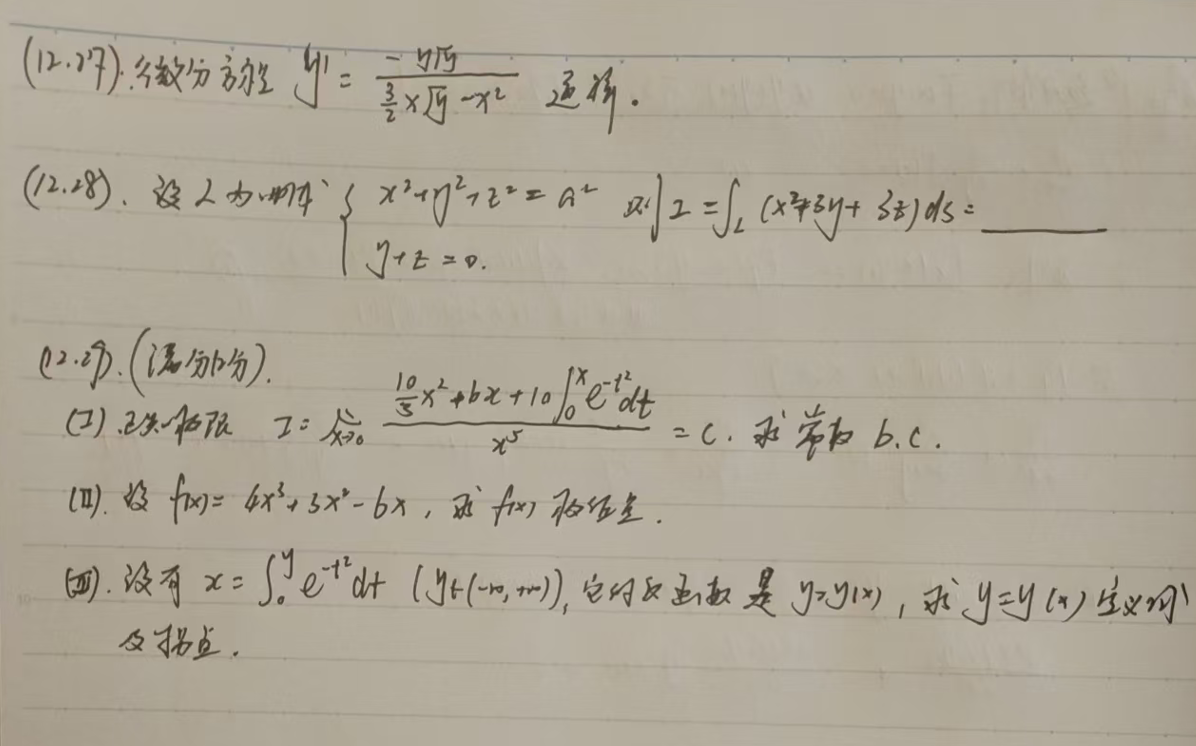 (12.27). 微分方程 y' = \frac{-y\sqrt{y}}{\frac{3}{2}x\sqrt{y}-x^2} 通解.
(12.28). 设 L 为曲线 \begin{cases} x^2+y^2+z^2=a^2 \\ y+z=0. \end{cases} 则 I = \int_L (x^2+3y+3z)ds = ______
(12.29). (满分12分).
(I). 已知极限 I = \lim_{x→0} \frac{\frac{10}{3}x^2+bx+10\int_0^x e^{-t^2}dt}{x^5} = c. 求常数 b.c.
(II). 设 f(x) = 4x^3+3x^2-6x, 求 f(x) 极值点.
(III). 设有 x = \int_0^y e^{-t^2}dt (y∈(-∞,+∞)), 它的反函数是 y=y(x), 求 y=y(x) 定义域
及拐点.